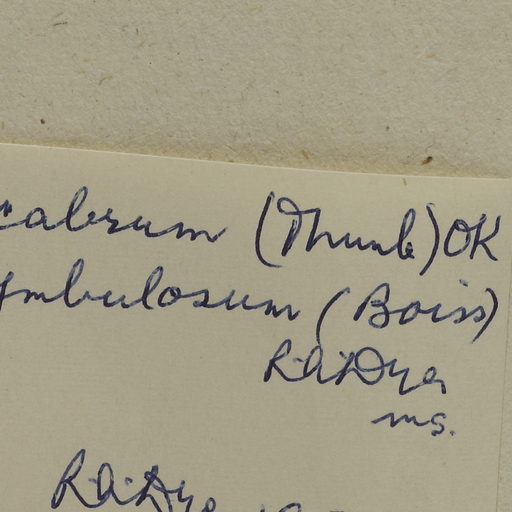 cabrum (Thunb) OK
ymbulosum (Boiss)
R.A. Dyer
ms.
R.A. Dye